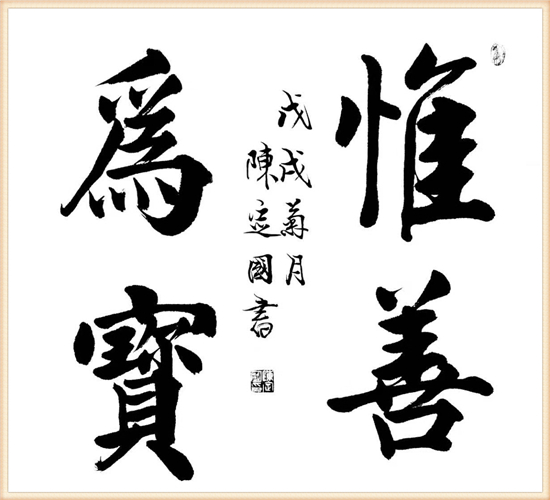 惟善
爲寶
戊戌菊月
陳定國書